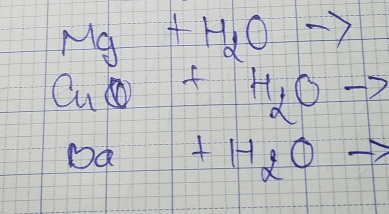 Mg + H₂O →
Cu + H₂O →
Ba + H₂O →